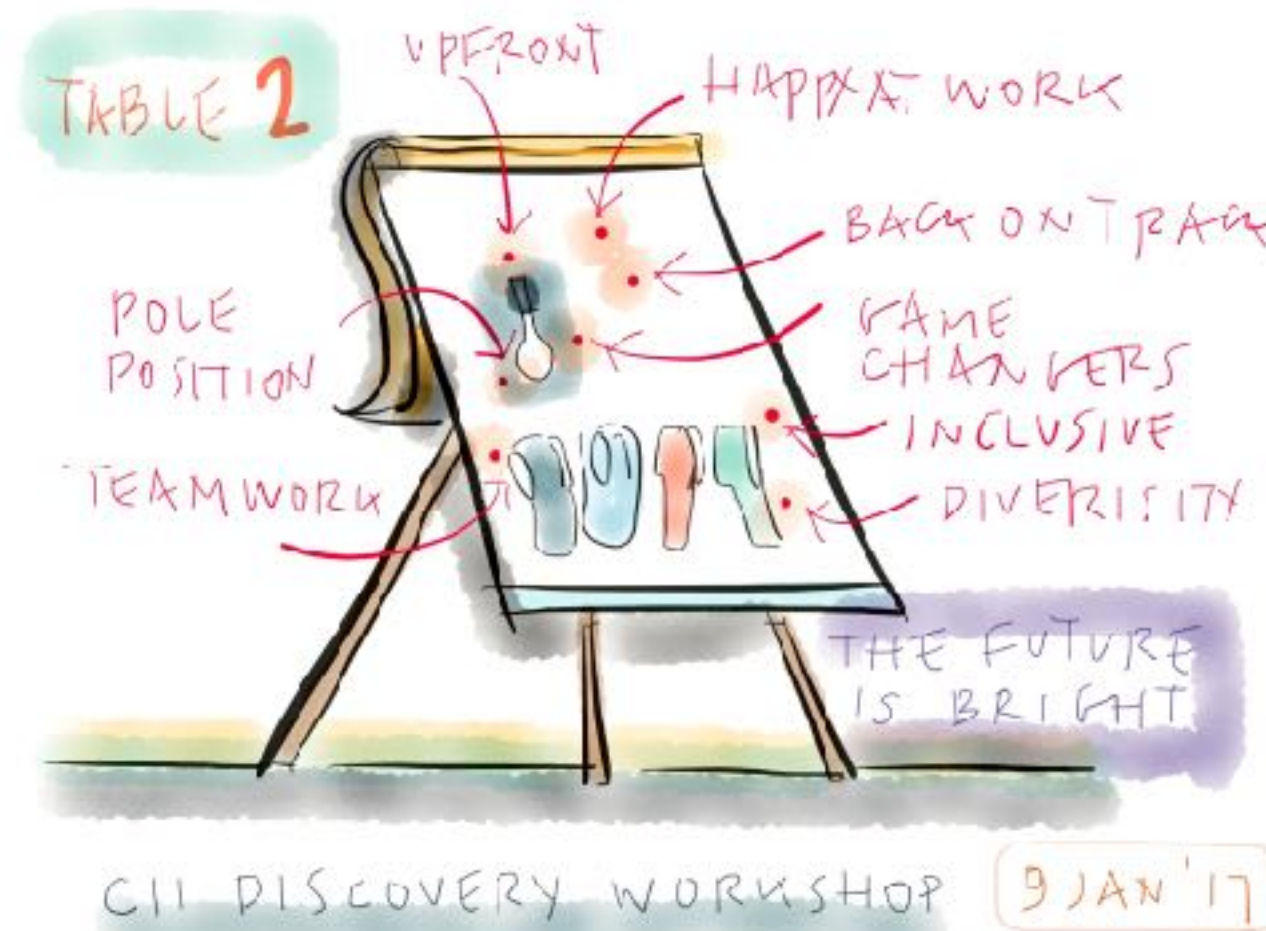 TABLE 2
UPFRONT
HAPPY AT WORK
BACK ON TRACK
POLE
POSITION
GAME
CHANGERS
INCLUSIVE
TEAMWORK
DIVERISITY
THE FUTURE
IS BRIGHT
CII DISCOVERY WORKSHOP
9 JAN '17